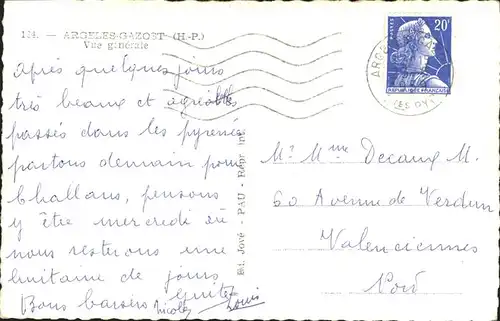 124. — ARGELES-GAZOST (H.-P.)
Vue générale
Après quelques jours
très beaux et agréables
passés dans les pyrenées
partons demain pour
Challans, pensons
y être mercredi où
nous resterons une
huitaine de jours
Bons baisers
Nicole Louis
Ed. Jové - PAU - Repr. int.
POSTES
20F
REPUBLIQUE FRANÇAISE
Mr Mme Decaux M.
60 Avenue de Verdun
Valenciennes
Nord